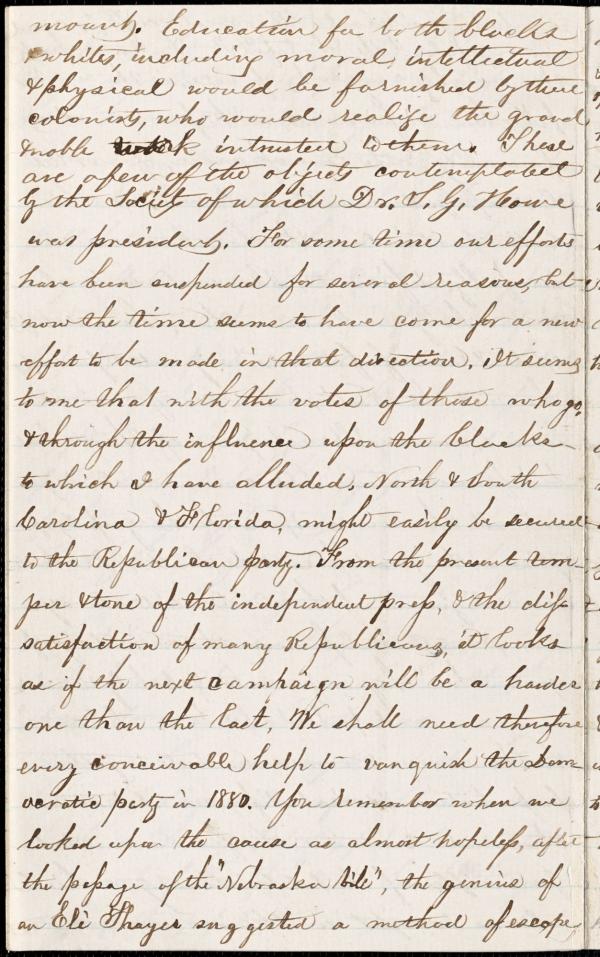 mount. Education for both blacks
& whites, including moral, intellectual
& physical would be furnished by these
colonists, who would realize the grand
& noble work intrusted to them. These
are a few of the objects contemplated
by the Society of which Dr. S. G. Howe
was president. For some time our efforts
have been suspended for several reasons, but
now the time seems to have come for a new
effort to be made in that direction. It seems
to me that with the votes of those who go,
& through the influence upon the blacks
to which I have alluded, North & South
Carolina & Florida, might easily be secured
to the Republican party. From the present tem-
per & tone of the independent press, & the dis-
satisfaction of many Republicans, it looks
as if the next campaign will be a harder
one than the last. We shall need therefore
every conceivable help to vanquish the Dem-
ocratic party in 1880. You remember when we
looked upon the cause as almost hopeless, after
the passage of the "Nebraska bill", the genius of
an Eli Thayer suggested a method of escape